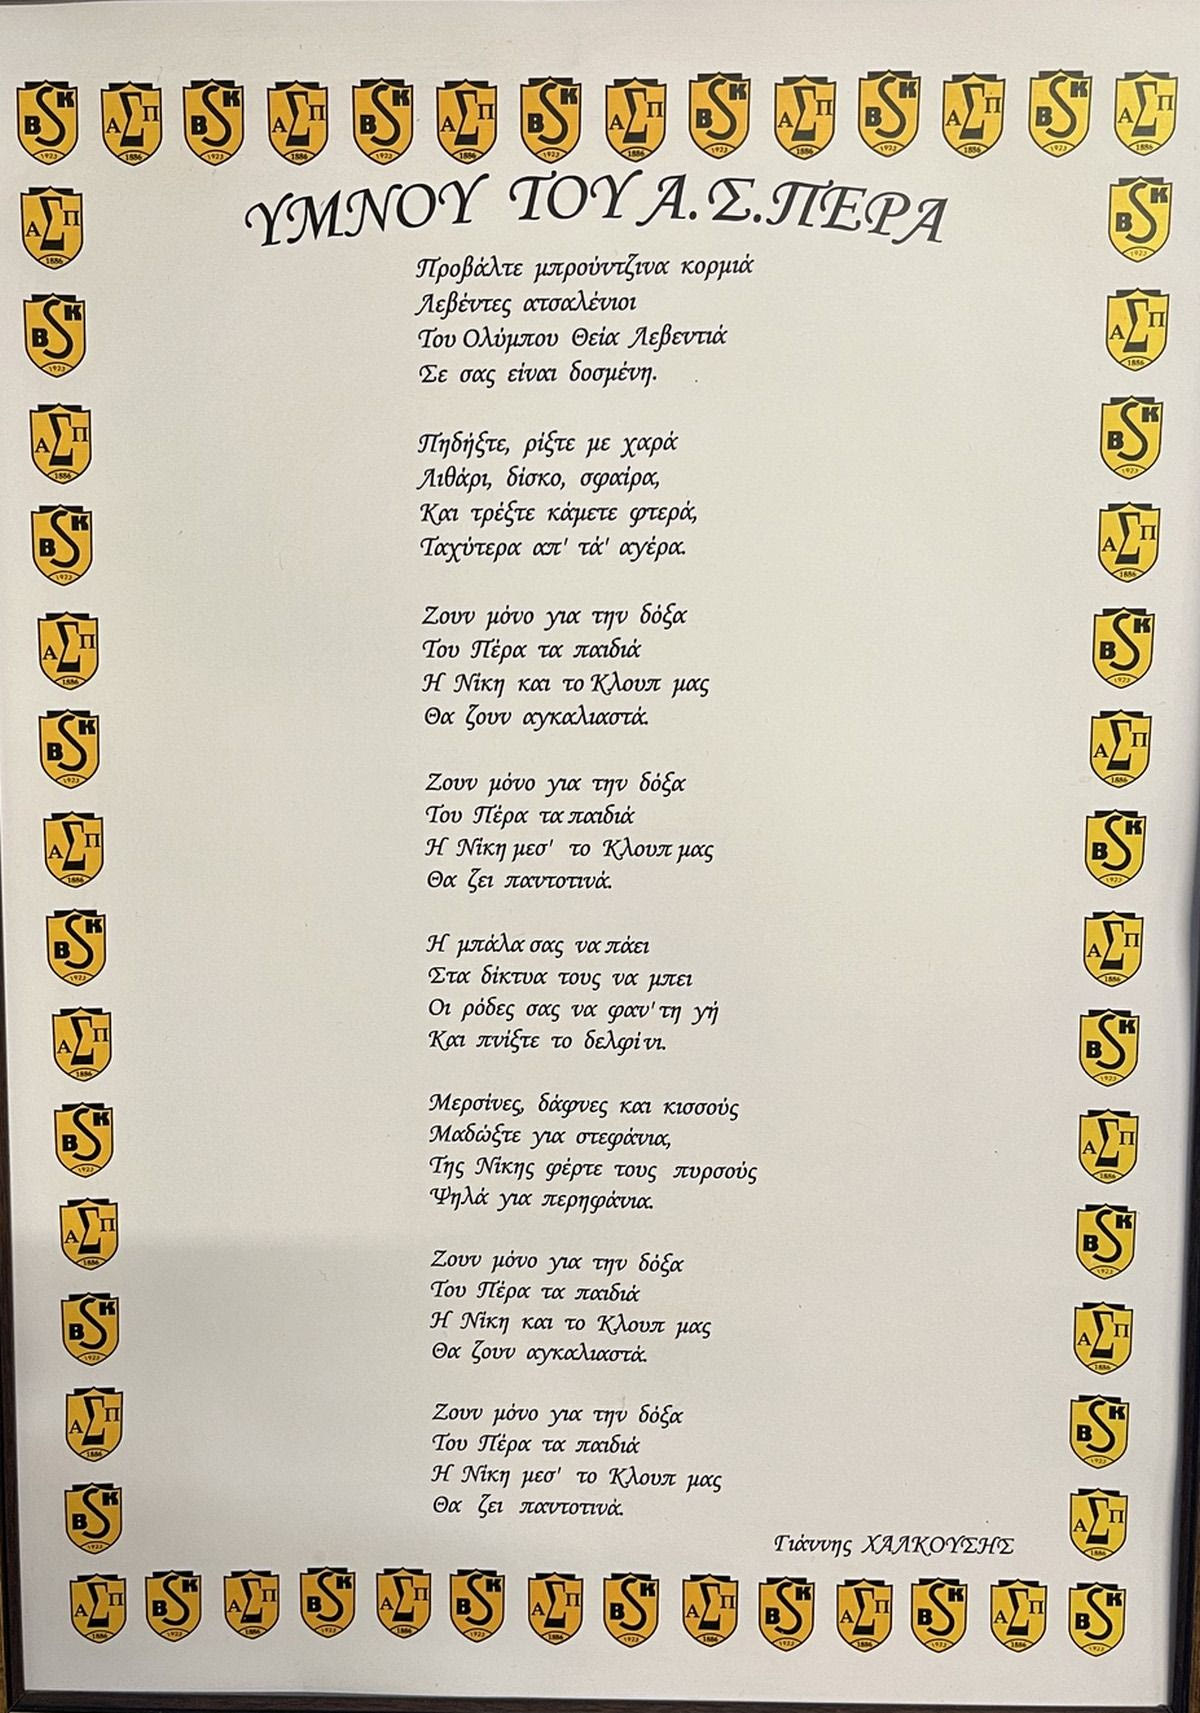 ΥΜΝΟΥ ΤΟΥ Α.Σ.ΠΕΡΑ
Προβάλτε μπρούντζινα κορμιά
Λεβέντες ατσαλένιοι
Του Ολύμπου Θεία Λεβεντιά
Σε σας είναι δοσμένη.
Πηδήξτε, ρίξτε με χαρά
Λιθάρι, δίσκο, σφαίρα,
Και τρέξτε κάμετε φτερά,
Ταχύτερα απ' τά' αγέρα.
Ζουν μόνο για την δόξα
Του Πέρα τα παιδιά
Η Νίκη και το Κλουπ μας
Θα ζουν αγκαλιαστά.
Ζουν μόνο για την δόξα
Του Πέρα τα παιδιά
Η Νίκη μεσ' το Κλουπ μας
Θα ζει παντοτινά.
Η μπάλα σας να πάει
Στα δίκτυα τους να μπει
Οι ρόδες σας να φαν' τη γή
Και πνίξτε το δελφίνι.
Μερσίνες, δάφνες και κισσούς
Μαδώξτε για στεφάνια,
Της Νίκης φέρτε τους πυρσούς
Ψηλά για περηφάνια.
Ζουν μόνο για την δόξα
Του Πέρα τα παιδιά
Η Νίκη και το Κλουπ μας
Θα ζουν αγκαλιαστά.
Ζουν μόνο για την δόξα
Του Πέρα τα παιδιά
Η Νίκη μεσ' το Κλουπ μας
Θα ζει παντοτινά.
Γιάννης ΧΑΛΚΟΥΣΗΣ